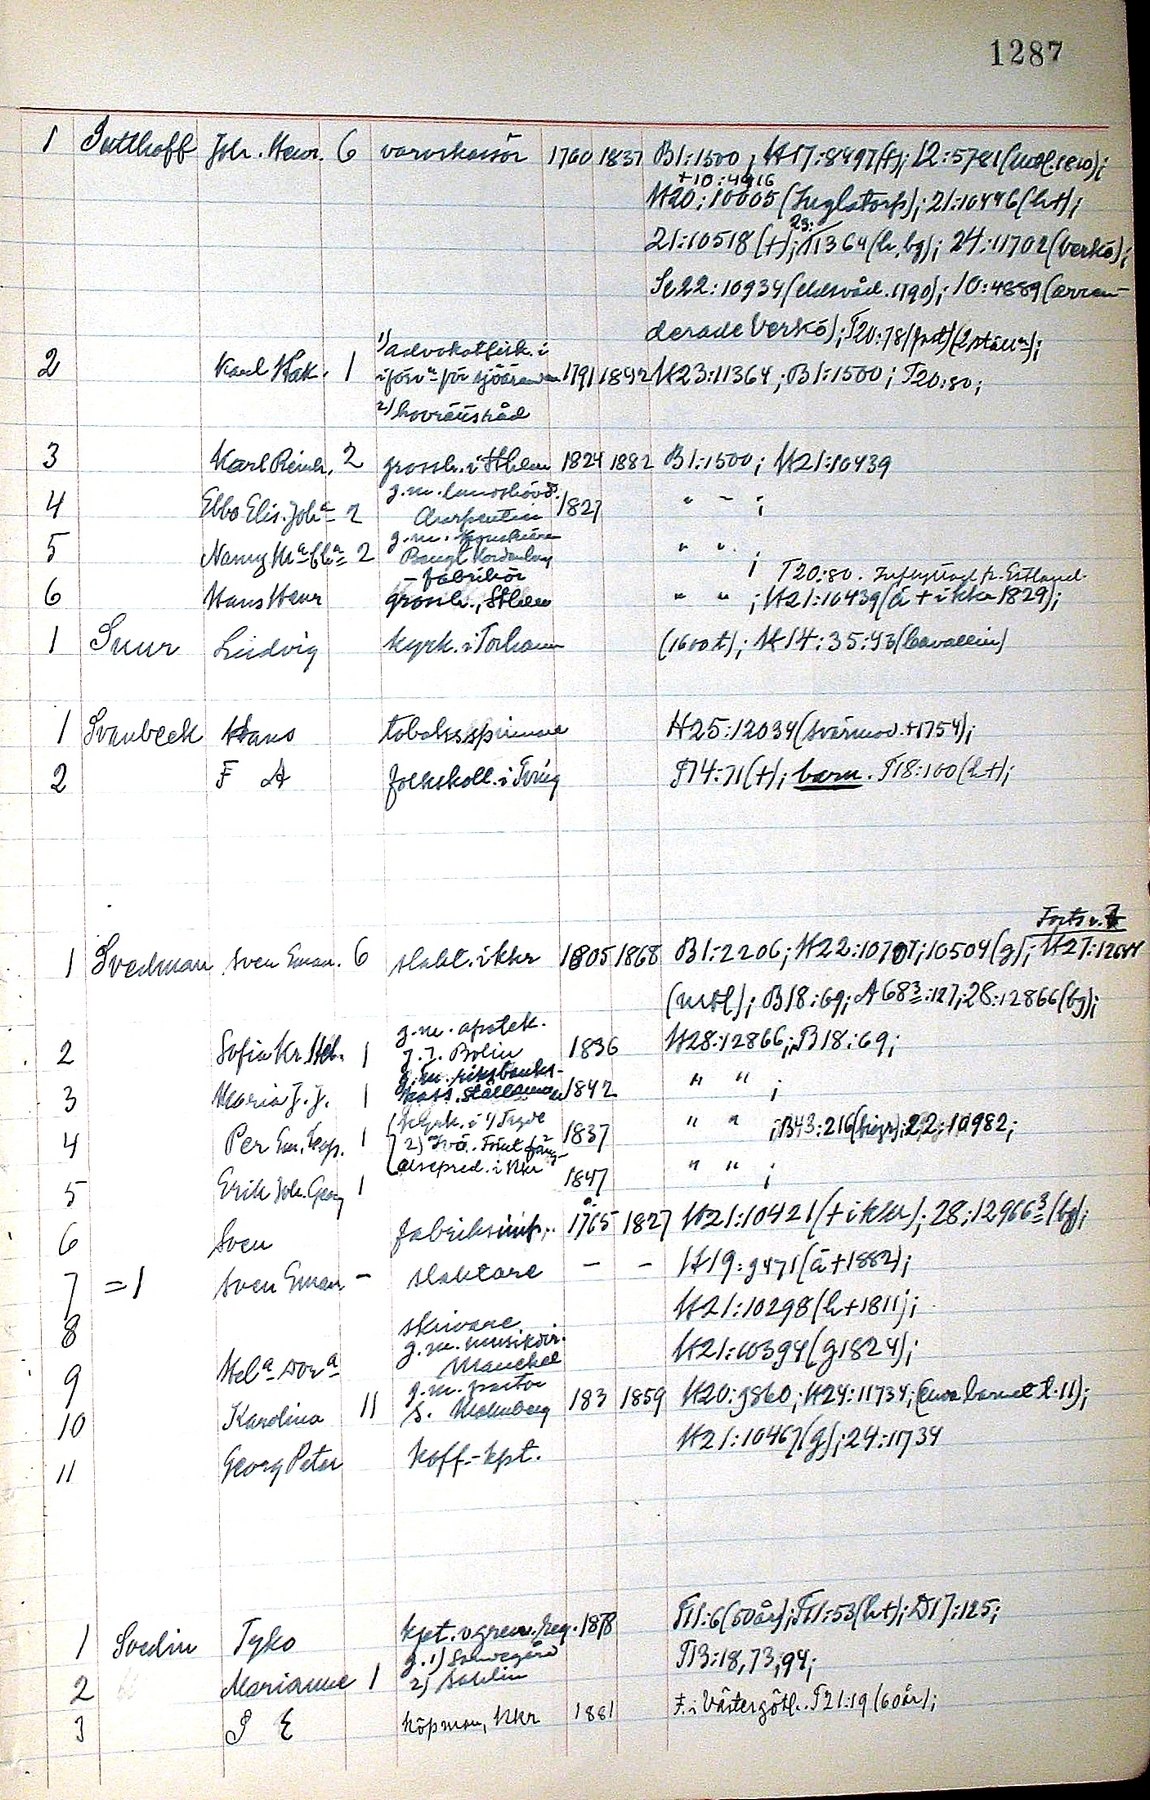 1287
1 Sutthoff Joh. Henr. 6 varvskassör 1760 1837 B1:1500; H17:8497(t); 12:5781(uppl.1810);
+10:4916
H20:10005 (Luglatorp); 21:10446 (h+);
23:
21:10518 (+); 11364 (h, bg); 24:11702 (Verkö);
Se 22:10934 (eldsvåd. 1790); 10:4889 (arren-
derade Verkö); T20:78 (2 ställn);
2 Karl Hak. 1 1) advokatfisk. i
för sjöärenden 1791 1842 H23:11364; B1:1500; T20:80;
2) hovrättsråd
3 Karl Reinh. 2 grossh. i Sthlm 1824 1882 B1:1500; H21:10439
4 Ebba Elis. Joha 2 g.m. landshövd.
Charpentier 1827 " - ;
5 Nanny Ma 2 g.m.
Bengt Nordenberg " " ;
6 Hans Henr - fabrikör
grossh., Sthlm T20:80. fr. Estland.
" " ; H21:10439 (å + i kkr 1829);
1 Suur Ludvig kyrk. i Torhamn (1600t); H14:35:43 (Cavallin)
1 Svanbeck Hans tobaksspinnare H25:12034 (svärmod. +1754);
2 F A folkskoll. i Tving T14:71(+); barn. T18:100 (h+);
Forts. n. 7
1 Svedman Sven Eman. 6 slakt. i kkr 1805 1868 B1:2206; H22:10707; 10504(g); H27:12644
(uppl); B18:69; A683:127; 28:12866 (bg);
2 Sofia Kr. Hel. 1 g.m. apotek.
J. J. Bolin 1836 H28:12866; B18:69;
3 Maria J. J. 1 g.m. riksbanks-
kass. 1842 " " ;
4 Per Em. 1 kyrk. i 1) Tryde
2) Ivö. Förut fäng-
elsepred. i kkr 1837 " " ; B43:216 (biogr); 22:10982;
5 Erik Joh. Georg 1 1847 " " ;
6 Sven fabriksinsp. 1765 1827 H21:10421 (+ i kkr); 28:12966 3 (bg);
7 =1 Sven Eman. - slaktare - - H19:9471 (å +1882);
8 skrivare H21:10298 (h +1811);
9 Hela Dora g.m. musikdir.
Manckel H21:10394 (g 1824);
10 Karolina 11 g.m. pastor
S. Malmberg 183 1859 H20:9860; H24:11734; (enda barnet t. 11);
11 Georg Peter koff.-kpt. H21:10467(g); 24:11734
1 Svedin Tyko kpt. v gren. reg. 1878 T11:6 (50 år); T11:53 (h+); D17:125;
2 Marianne 1 g. 1)
2) Sahlin T13:18, 73, 94;
3 S E köpman, kkr 1881 F. i Västergötl. T21:19 (60 år);